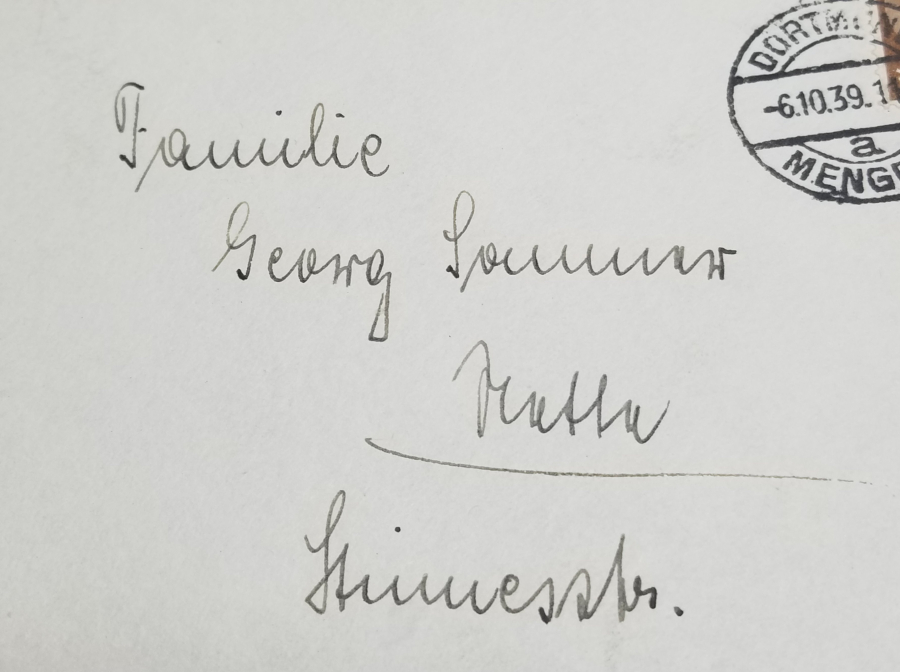 DORTMUN
-6.10.39.11
a
MENGE
Familie
Georg Sommer
Nette
Stinnesstr.